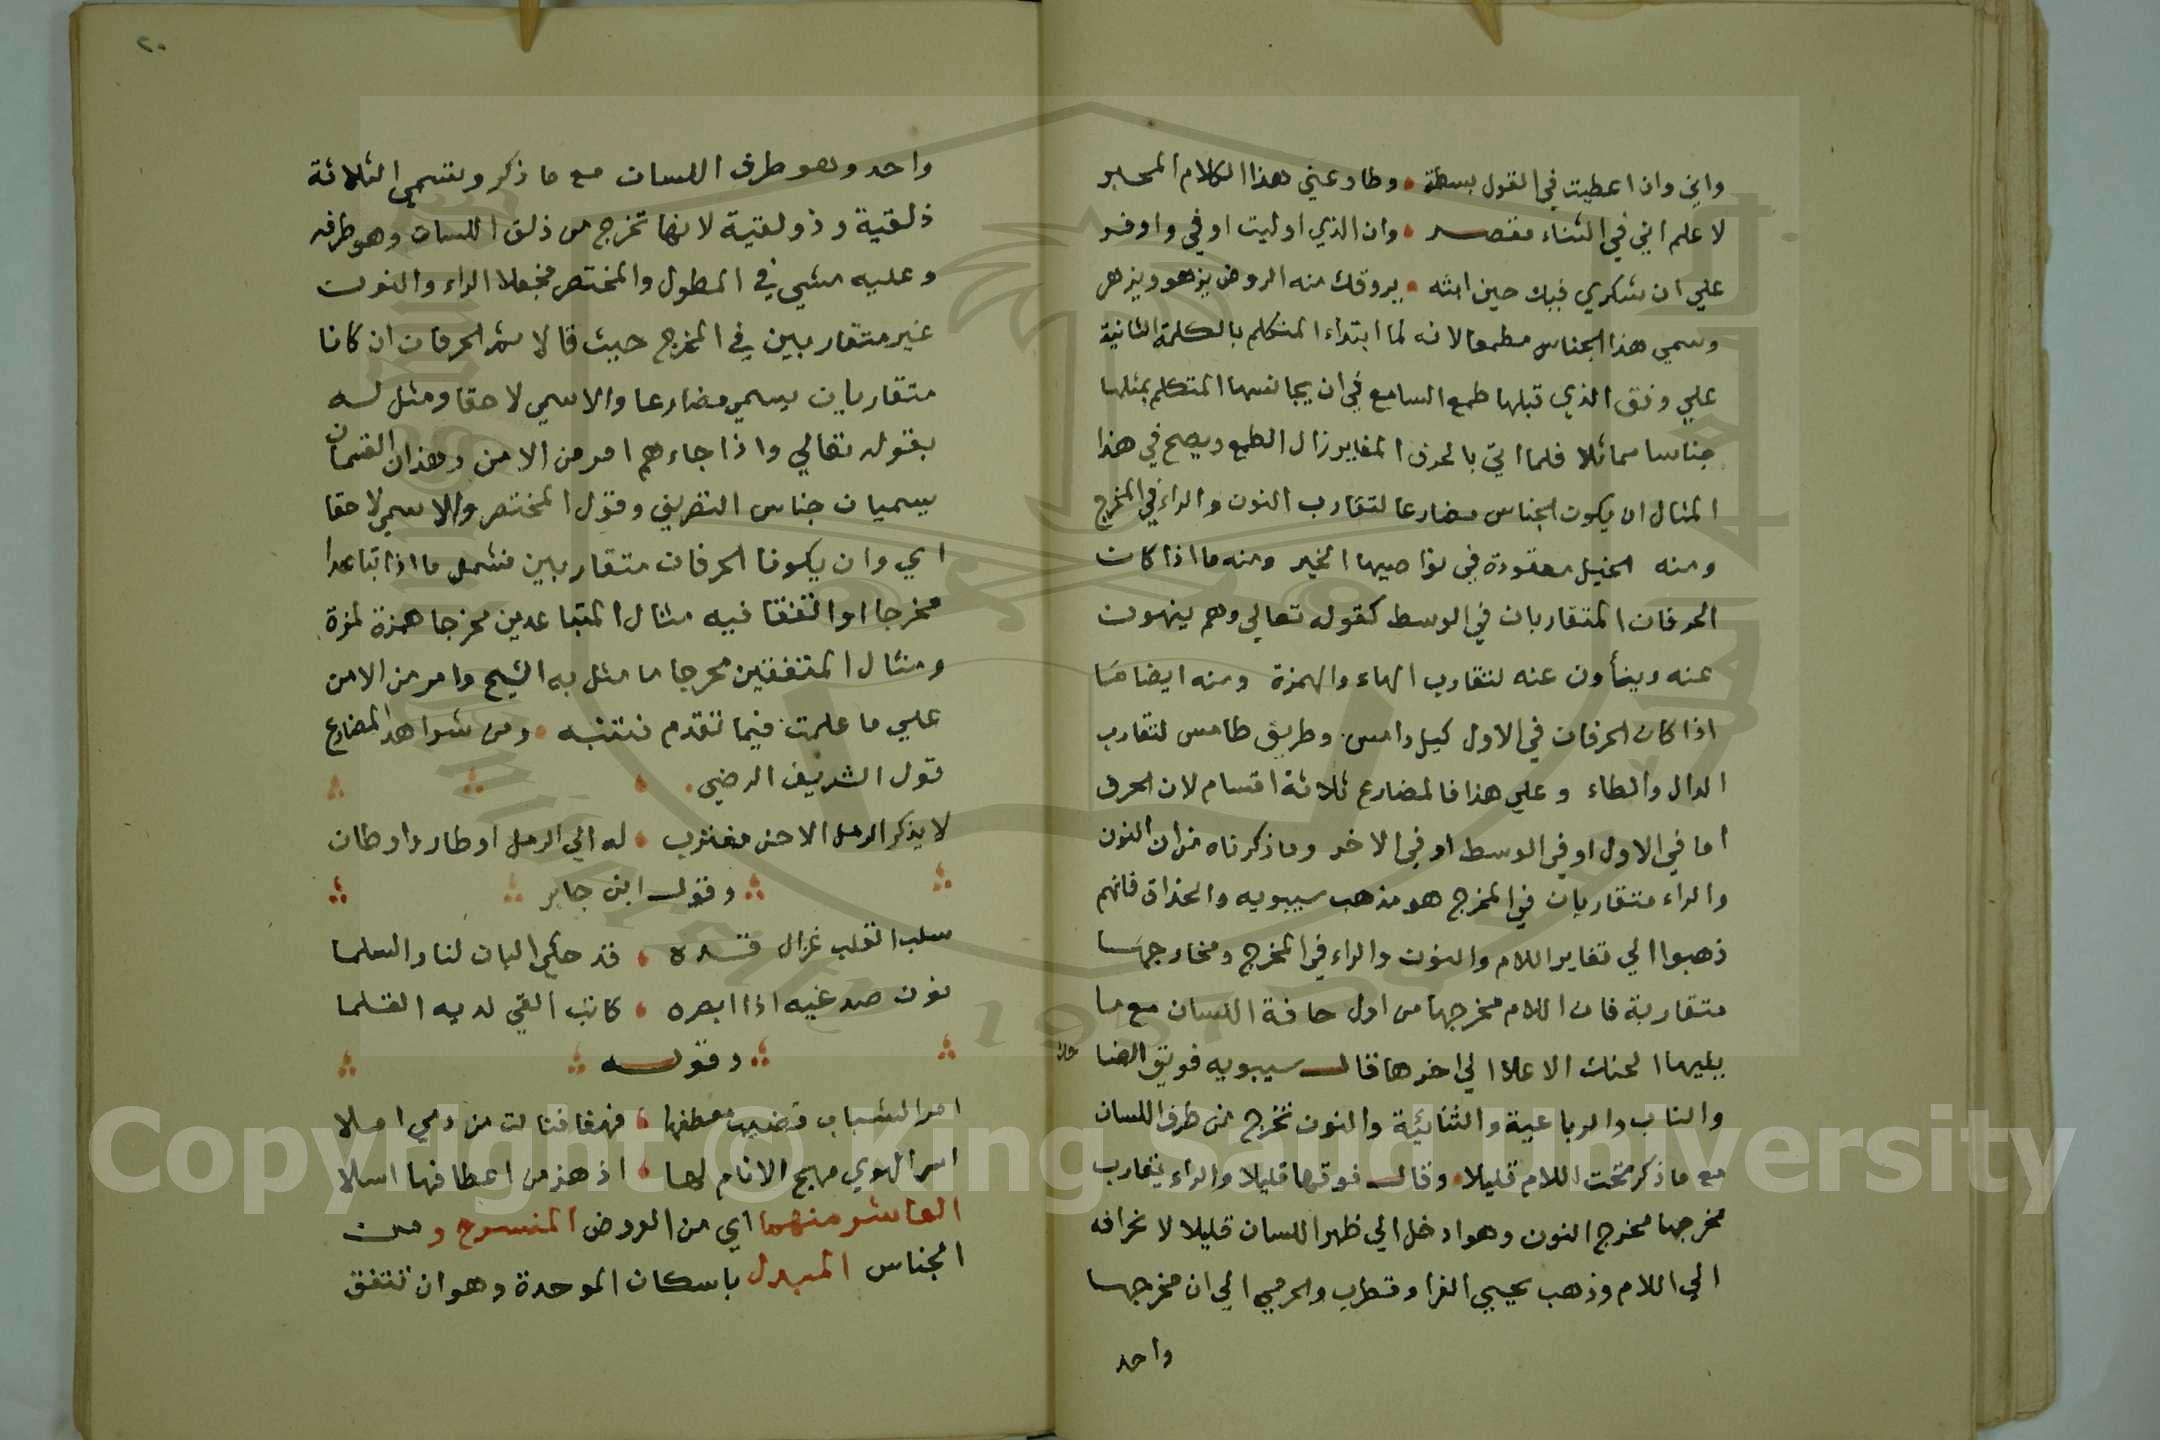 واني وان اعطيت في القول بسطة وطاوعني هذا الكلام المحبر
لاعلم اني في الثناء مقصر وان الذي اوليت اوفي واوفر
علي ان شكري فيك حين ابثه يروقك منه الروض يزهو ويزهر
وسمي هذا الجناس مطمعا لانه لما ابتداء المتكلم بالكلمة الثانية
علي وفق الذي قبلها طمع السامع في ان يجانسها المتكلم بمثلها
جناسا مماثلا فلما اتي بالحرف المغاير زال الطمع ويصح في هذا
المثال ان يكون الجناس مضارعا لتقارب النون والراء في المخرج
ومنه الخيل معقودة في نواصيها الخير ومنه ما اذا كان
الحرفان المتقاربان في الوسط كقوله تعالي وهم ينهون
عنه وينأون عنه لتقارب الهاء والهمزة ومنه ايضا
اذا كان الحرفان في الاول كليل دامس وطريق طامس لتقارب
الدال والطاء وعلي هذا فالمضارع ثلاثة اقسام لان الحرف
اما في الاول او في الوسط او في الاخر وما ذكرناه من ان النون
والراء متقاربان في المخرج هو مذهب سيبويه والحذاق فانهم
ذهبوا الي تغاير اللام والنون والراء في المخرج ومخارجها
متقاربة فان اللام مخرجها من اول حافة اللسان مع ما
يليها الحنك الاعلا الي اخرها قال سيبويه فويق الضا
حك
والناب والرباعية والثنائية والنون تخرج من طرف اللسان
مع ما ذكر تحت اللام قليلا وقال فوقها قليلا والراء يقارب
مخرجها مخرج النون وهو ادخل الي ظهر اللسان قليلا لانحرافه
الي اللام وذهب يحيي الفرا وقطرب والجرمي الي ان مخرجها
واحد
٢٠
واحد وهو طرف اللسان مع ما ذكر وتسمي الثلاثة
ذلقية وذولقية لانها تخرج من ذلق اللسان وهو طرفه
وعليه مشي في المطول والمختصر فجعلا الراء والنون
غير متقاربين في المخرج حيث قالا ثم الحرفان ان كانا
متقاربان يسمي مضارعا والا سمي لاحقا ومثل له
بقوله تعالي واذا جاءهم امر من الامن وهذان القسمان
يسميان جناس التصريف وقول المختصر والا سمي لاحقا
اي وان يكونا الحرفان متقاربين فشمل ما اذا تباعدا
مخرجا او اتفقا فيه مثال المتباعدين مخرجا همزة لمزة
ومثال المتفقين مخرجا ما مثل به الشيخ وامر من الامن
علي ما علمت فيما تقدم فتنبه ومن شواهد المضارع
قول الشريف الرضي
لا يذكر الرمل الا حن مغترب له الي الرمل اوطار واوطان
وقول ابن جابر
سلب القلب غزال قده قد حكي البان لنا والسلما
نون صدغيه اذا ابصره كاتب القي لديه القلما
وقوله
امر الشباب قضيب معطفها فهفا فنالت من دمي املا
اسر الهوي مهج الانام لها اذ هز من اعطافها اسلا
العاشر منهما اي من الروض المنسرح ومن
الجناس المبدل باسكان الموحدة وهو ان تتفق
Copyright © King Saud University
1957